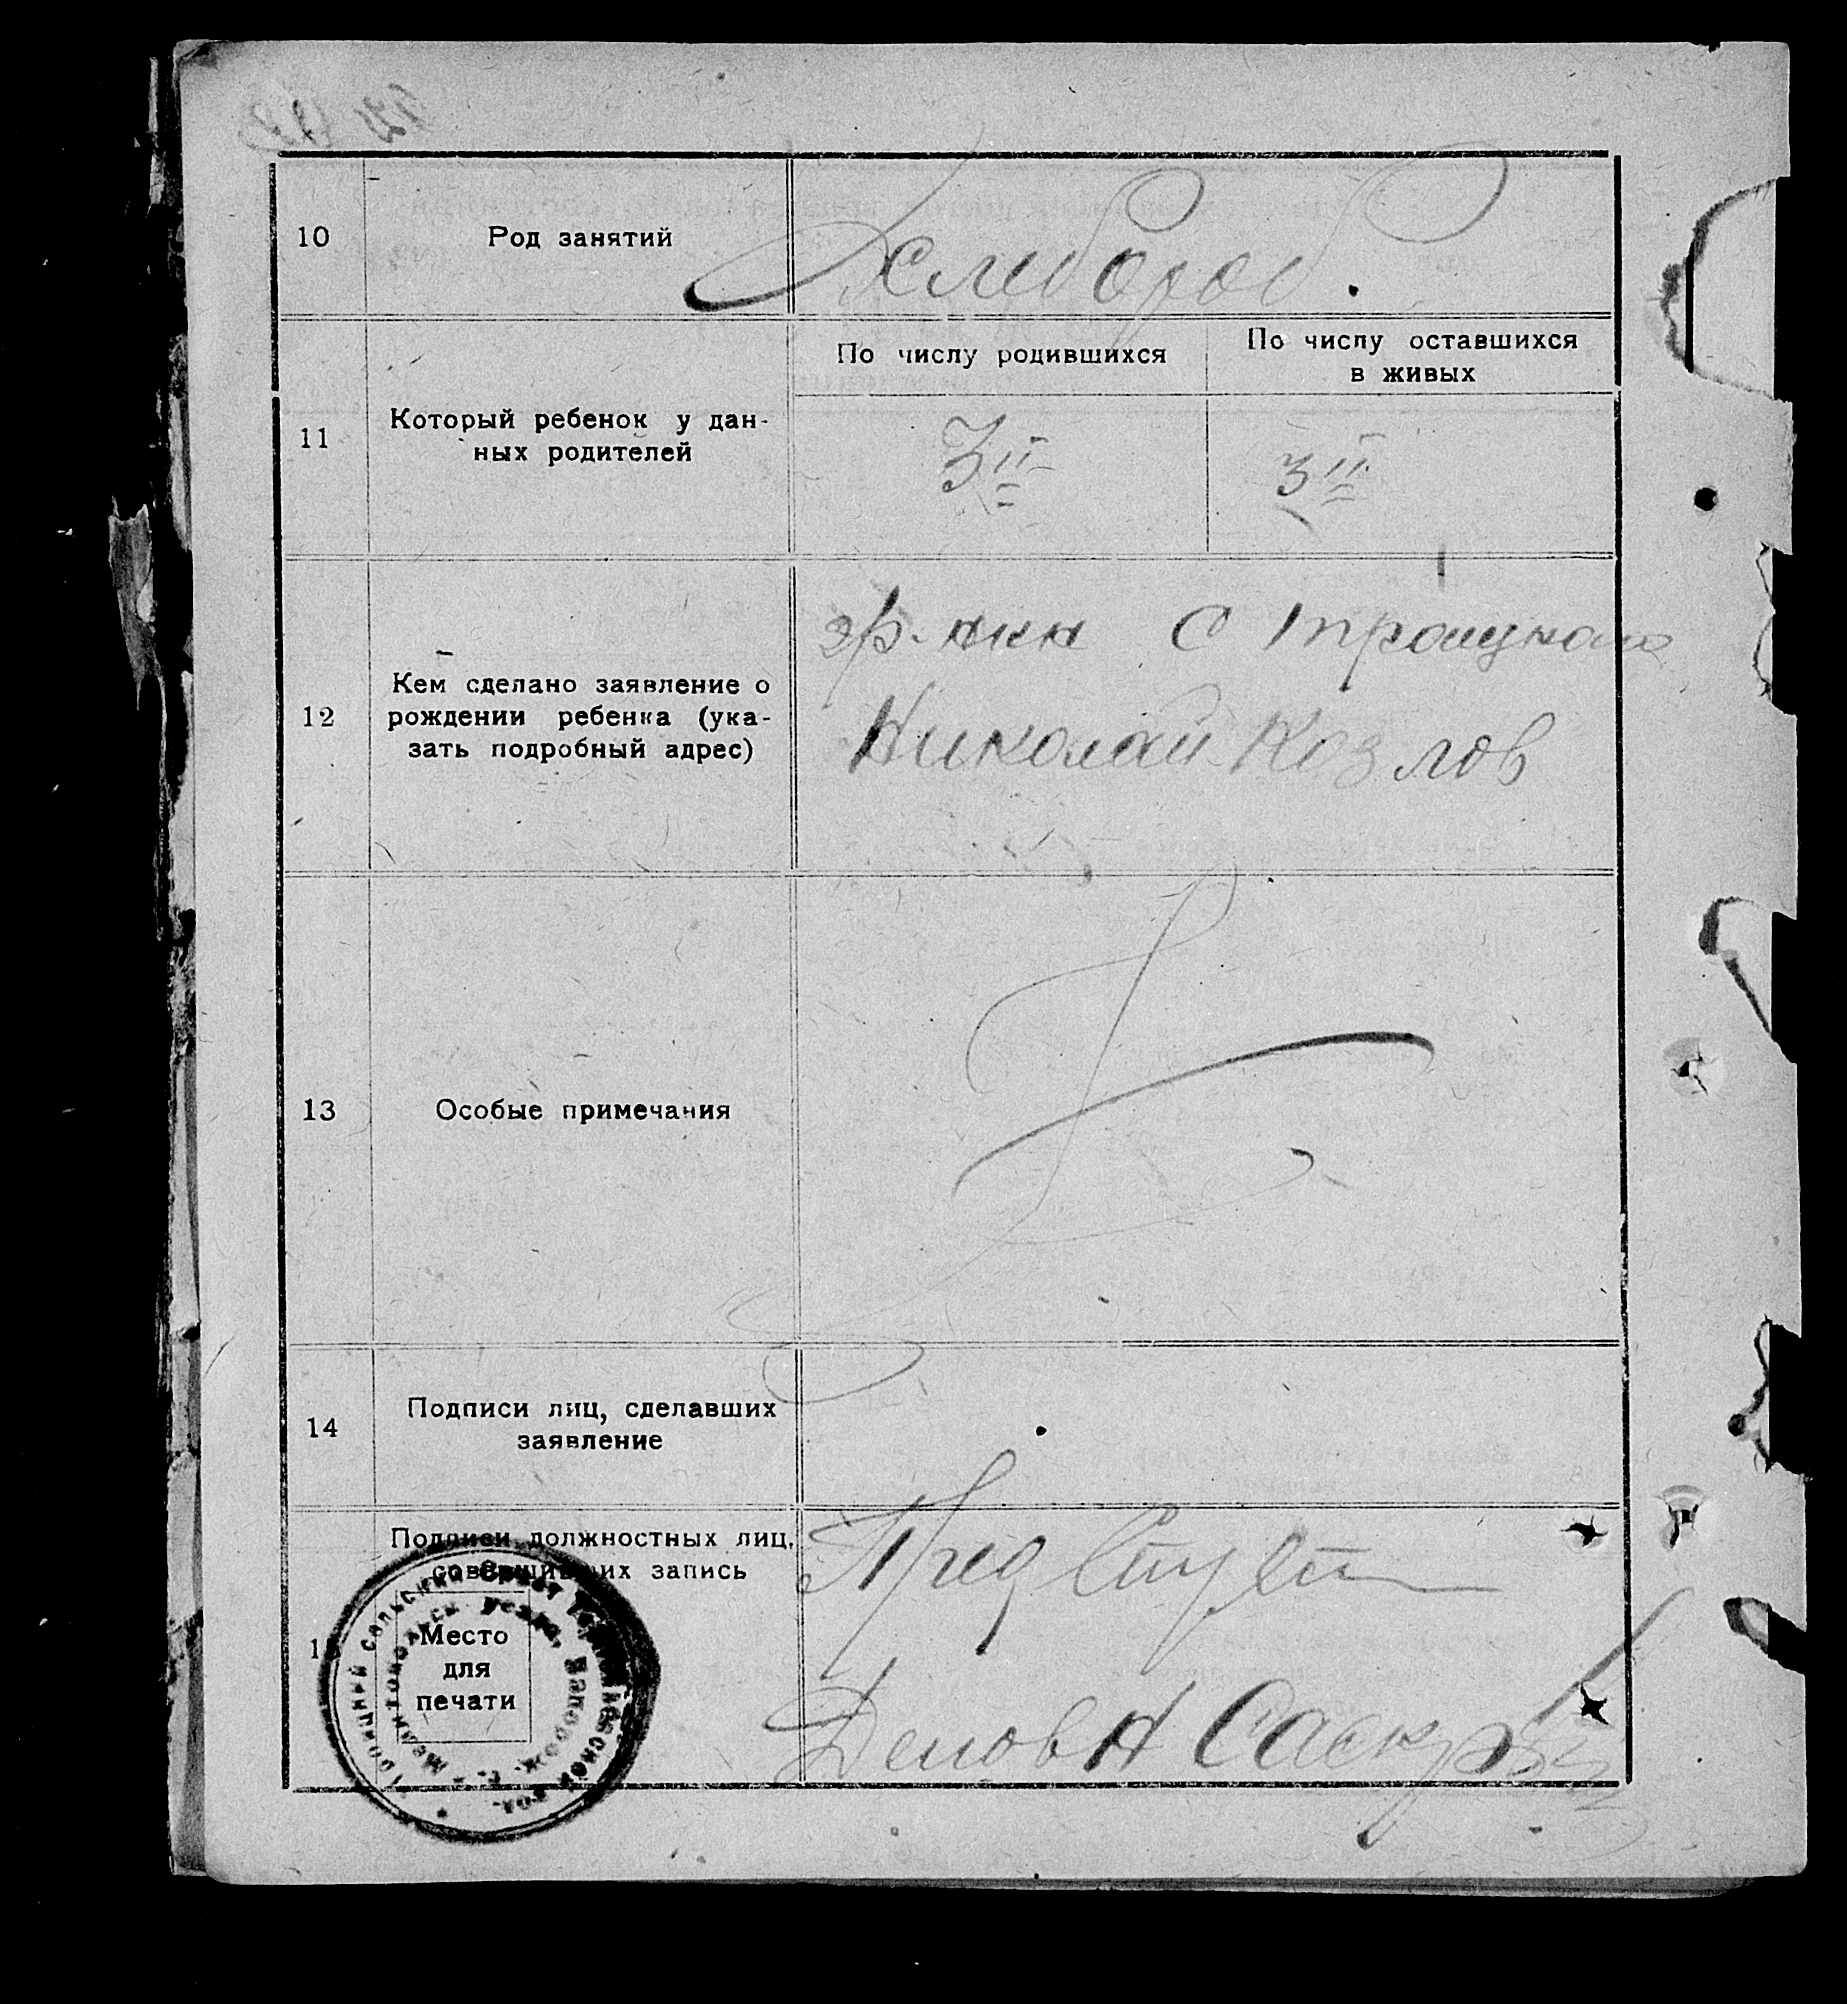 10
Род занятий
Хлебороб.
11
Который ребенок у дан-
ных родителей
По числу родившихся
По числу оставшихся
в живых
3й
3й
12
Кем сделано заявление о
рождении ребенка (ука-
зать подробный адрес)
гр-нин С Троицкого
Николай Козлов
13
Особые примечания
14
Подписи лиц, сделавших
заявление
Подписи должностных лиц,
совершивших запись
Место
для
печати
Пред
Делов